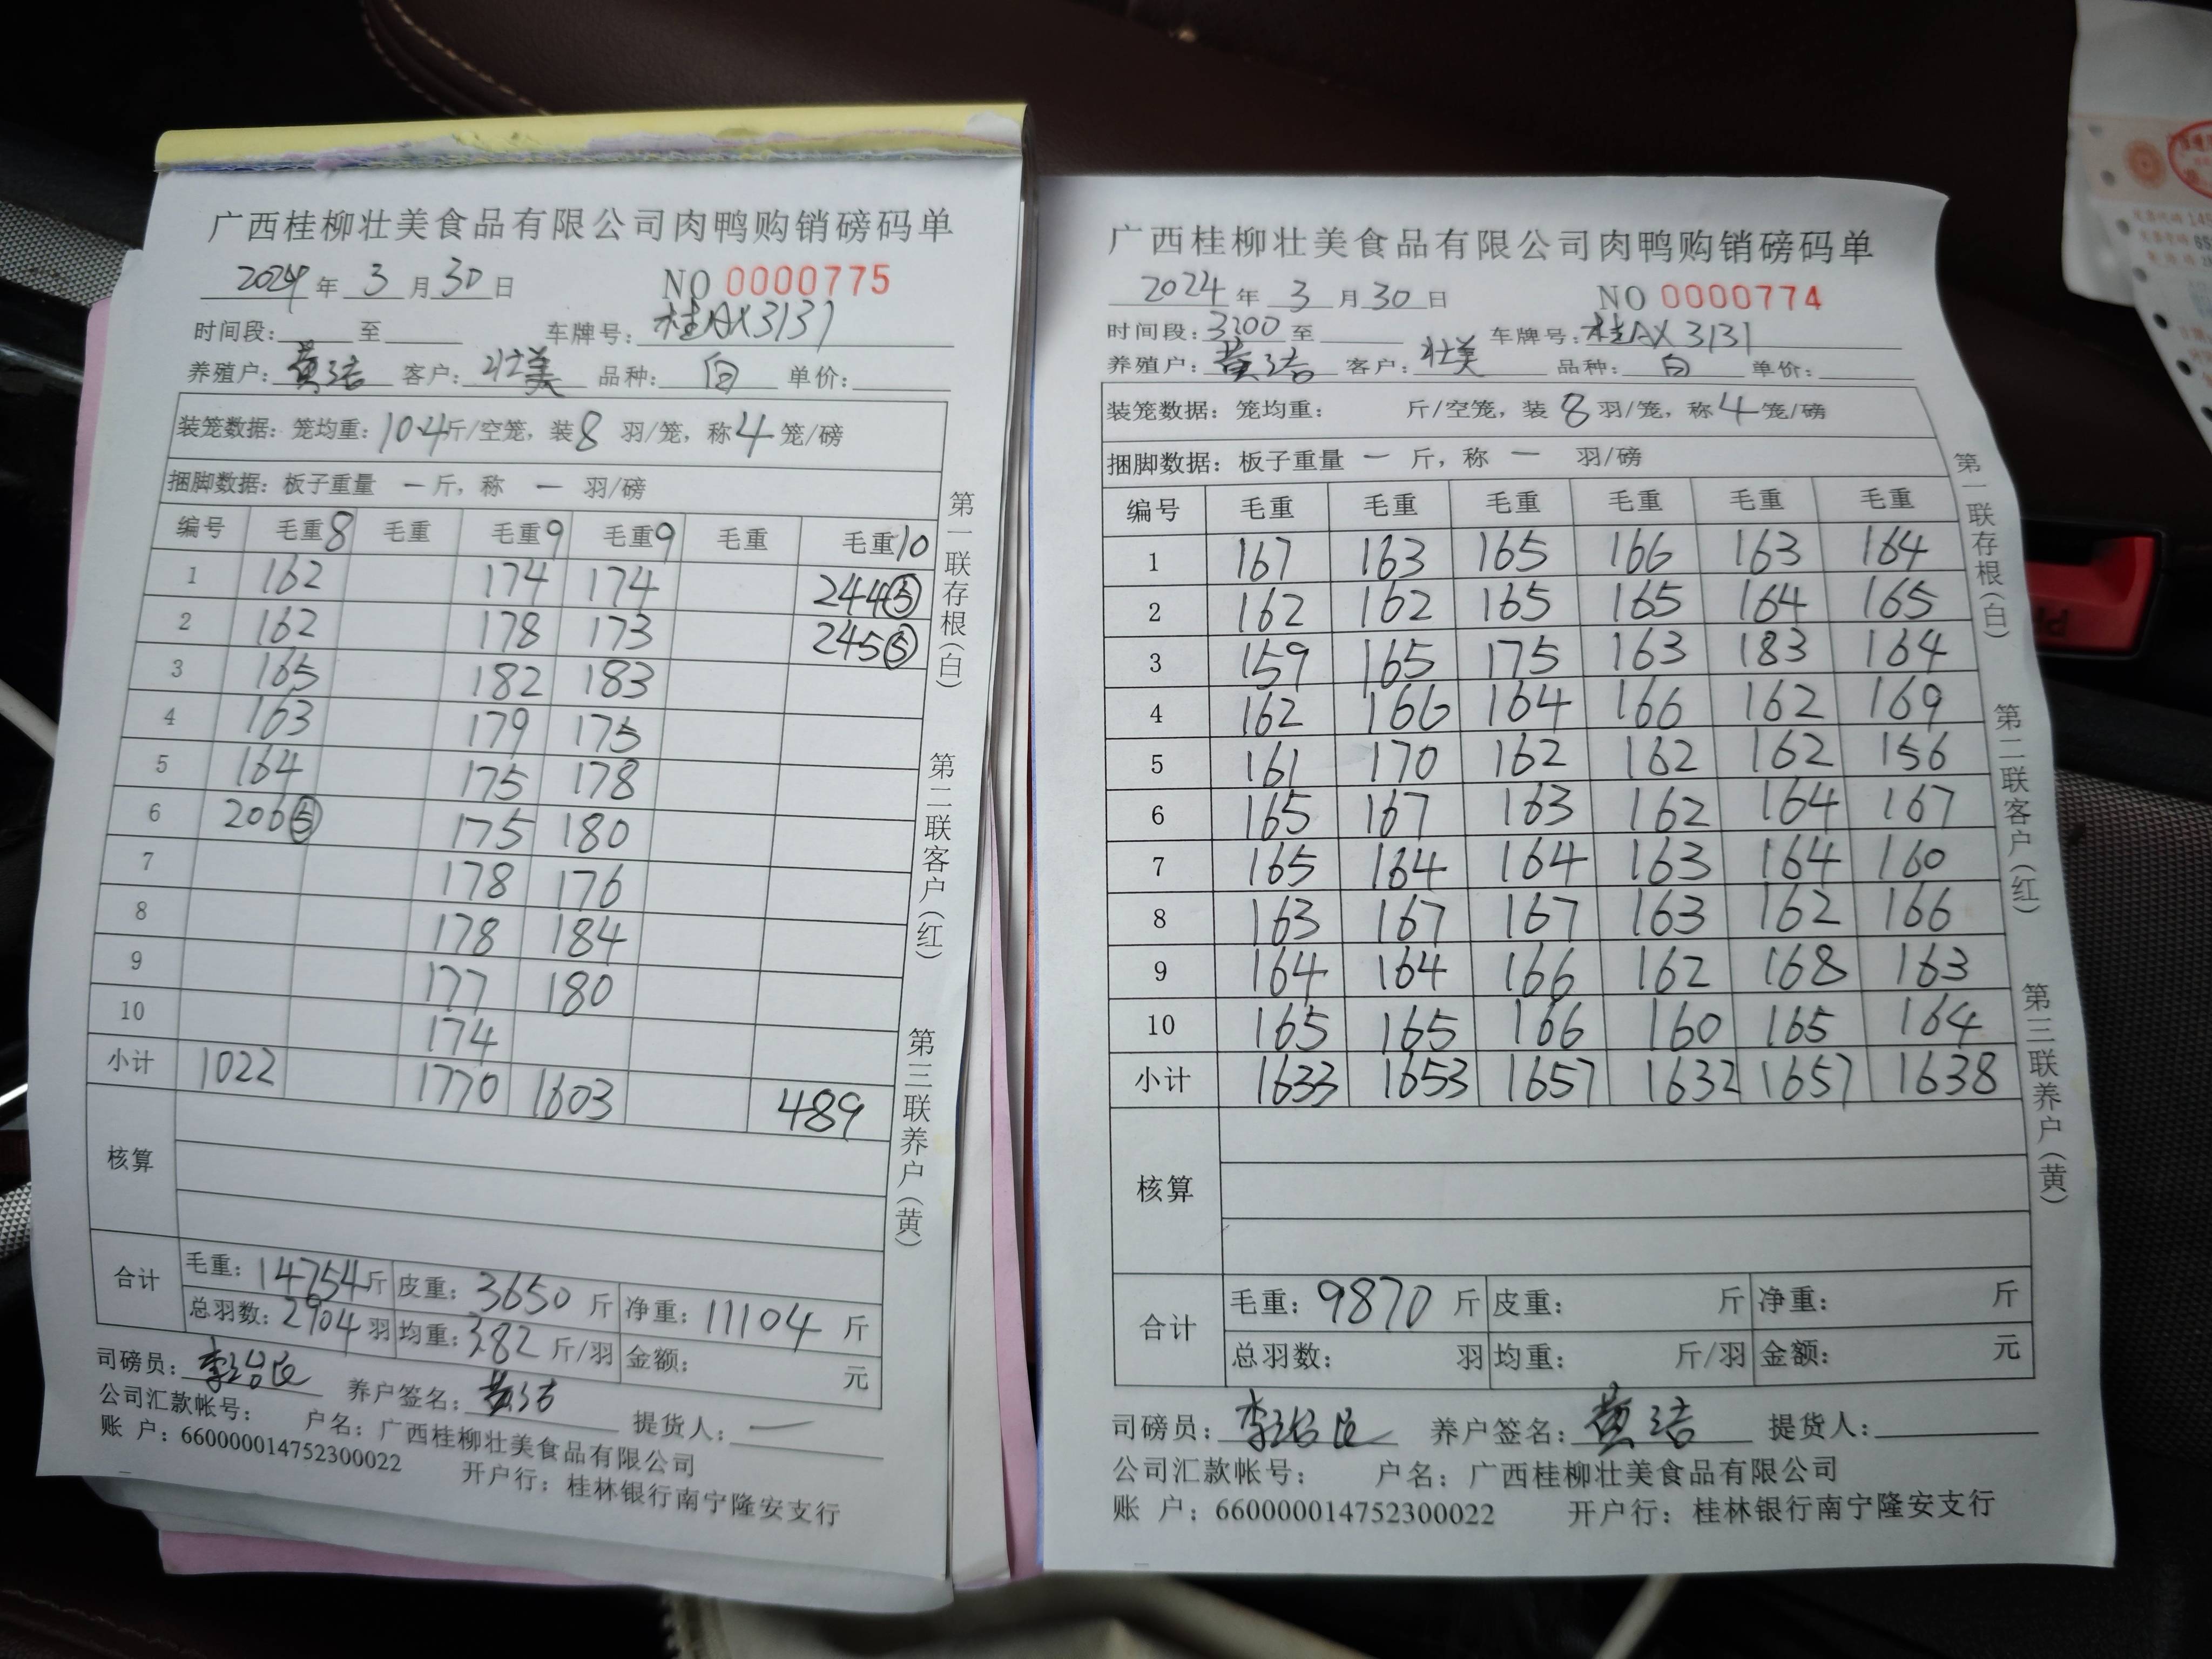 广西桂柳壮美食品有限公司肉鸭购销磅码单
2024年 3月30日 NO 0000775
时间段: 至 车牌号: 桂AX3131
养殖户: 黄洁 客户: 壮美 品种: 白 单价:
装笼数据: 笼均重: 10.4斤/空笼, 装8 羽/笼, 称4 笼/磅
捆脚数据: 板子重量 一斤, 称 一 羽/磅
编号 毛重8 毛重 毛重9 毛重9 毛重 毛重10
1 162 174 174 244⑤
2 162 178 173 245⑤
3 165 182 183
4 163 179 175
5 164 175 178
6 206⑤ 175 180
7 178 176
8 178 184
9 177 180
10 174
小计 1022 1770 1603 489
核算
合计 毛重: 14754斤 皮重: 3650 斤 净重: 11104 斤
总羽数: 2904 羽 均重: 3.82 斤/羽 金额: 元
司磅员: 养户签名: 黄洁 提货人: 一
公司汇款帐号: 户名: 广西桂柳壮美食品有限公司
账 户: 660000014752300022 开户行: 桂林银行南宁隆安支行
第一联存根(白) 第二联客户(红) 第三联养户(黄)
广西桂柳壮美食品有限公司肉鸭购销磅码单
2024年 3月30日 NO 0000774
时间段: 3200 至 车牌号: 桂AX3131
养殖户: 黄洁 客户: 壮美 品种: 白 单价:
装笼数据: 笼均重: 斤/空笼, 装8羽/笼, 称4笼/磅
捆脚数据: 板子重量 一 斤, 称 一 羽/磅
编号 毛重 毛重 毛重 毛重 毛重 毛重
1 167 163 165 166 163 164
2 162 162 165 165 164 165
3 159 165 175 163 183 164
4 162 166 164 166 162 169
5 161 170 162 162 162 156
6 165 167 163 162 164 167
7 165 164 164 163 164 160
8 163 167 167 163 162 166
9 164 164 166 162 168 163
10 165 165 166 160 165 164
小计 1633 1653 1657 1632 1657 1638
核算
合计 毛重: 9870 斤 皮重: 斤 净重: 斤
总羽数: 羽 均重: 斤/羽 金额: 元
司磅员: 养户签名: 黄洁 提货人:
公司汇款帐号: 户名: 广西桂柳壮美食品有限公司
账 户: 660000014752300022 开户行: 桂林银行南宁隆安支行
第一联存根(白) 第二联客户(红) 第三联养户(黄)